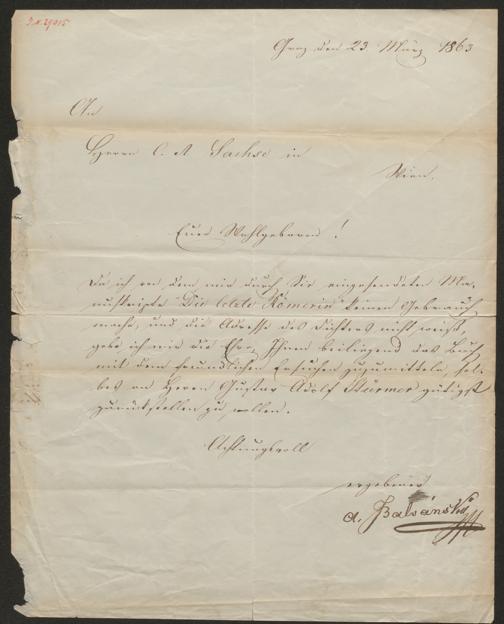 I.N. 29015
Graz den 23. März 1863
An
Herrn C. A. Sachse in
Wien.
Euer Wohlgeboren!
Da ich von dem mir durch Sie eingesendeten Ma-
nuskripte "Die letzte Römerin" keinen Gebrauch
mache, und die Adresse des Dichters nicht weiß,
gebe ich mir die Ehre, Ihnen beiliegend das Buch
mit dem freundlichen Ersuchen zuzumitteln, sel-
bes an Herrn Gustav Adolf Stürmer gütigst
zurückstellen zu wollen.
Achtungsvoll
ergebener
A. Balvansky